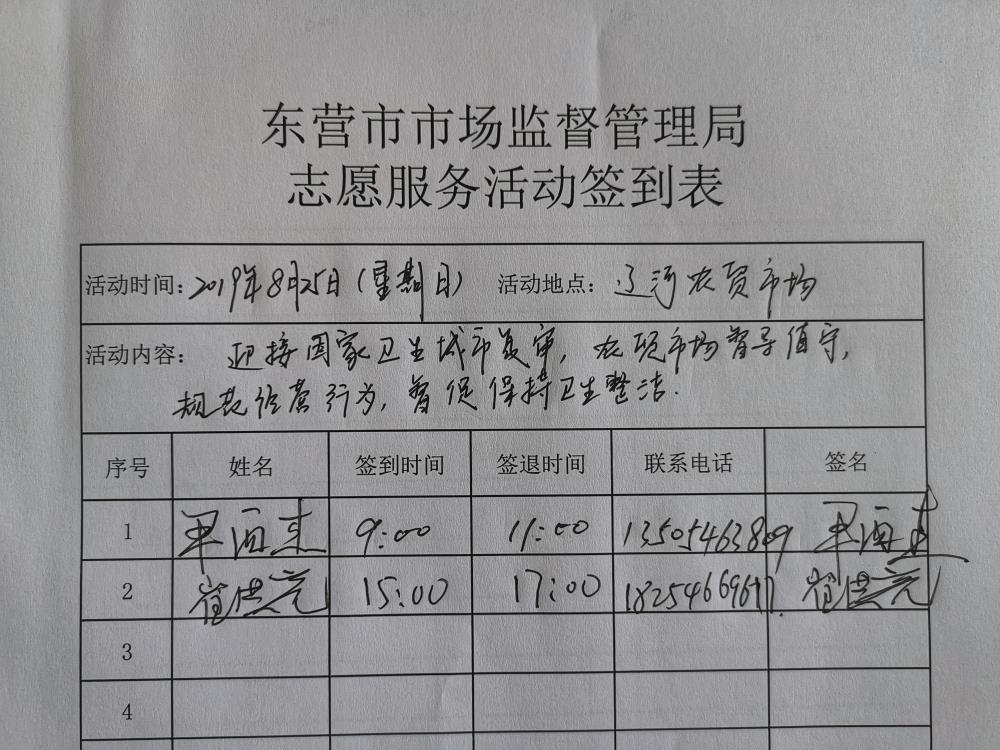 东营市市场监督管理局
志愿服务活动签到表
活动时间：2019年8月25日（星期日） 活动地点：辽河农贸市场
活动内容： 迎接国家卫生城市复审，农贸市场督导值守，
规范经营行为，督促保持卫生整洁.
序号 姓名 签到时间 签退时间 联系电话 签名
1 9:00 11:00 13505463809
2 15:00 17:00
3
4